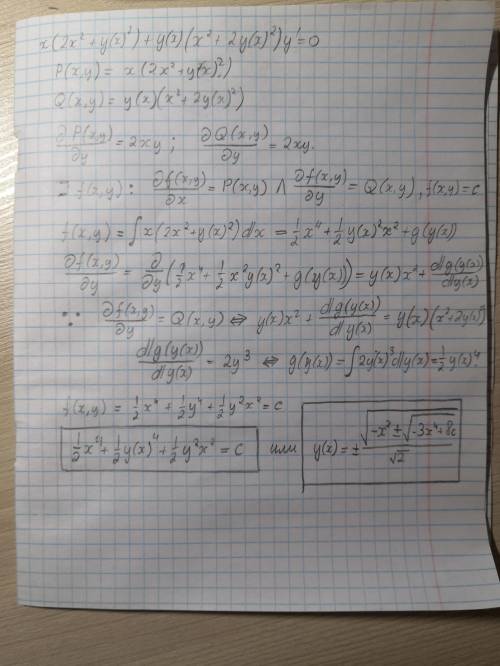 x(2x²+y(x)²)+y(x)(x²+2y(x)²)y'=0
P(x,y)= x(2x²+y(x)²)
Q(x,y)= y(x)(x²+2y(x)²)
∂P(x,y)/∂y = 2xy ; ∂Q(x,y)/∂y = 2xy.
∃ f(x,y): ∂f(x,y)/∂x = P(x,y) ∧ ∂f(x,y)/∂y = Q(x,y), f(x,y)=c
f(x,y)=∫x(2x²+y(x)²)dx = 1/2 x⁴ + 1/2 y(x)²x² + g(y(x))
∂f(x,y)/∂y = ∂/∂y (1/2 x⁴ + 1/2 x²y(x)² + g(y(x))) = y(x)x² + dg(y(x))/dy(x)
∵ ∂f(x,y)/∂y = Q(x,y) ⇔ y(x)x² + dg(y(x))/dy(x) = y(x)(x²+2y(x)²)
dg(y(x))/dy(x) = 2y³ ⇔ g(y(x)) = ∫2y(x)³dy(x) = 1/2 y(x)⁴
f(x,y) = 1/2 x⁴ + 1/2 y⁴ + 1/2 y²x² = c
1/2 x⁴ + 1/2 y(x)⁴ + 1/2 y²x² = c или y(x) = ± √(-x² ± √(-3x⁴+8c))/√2